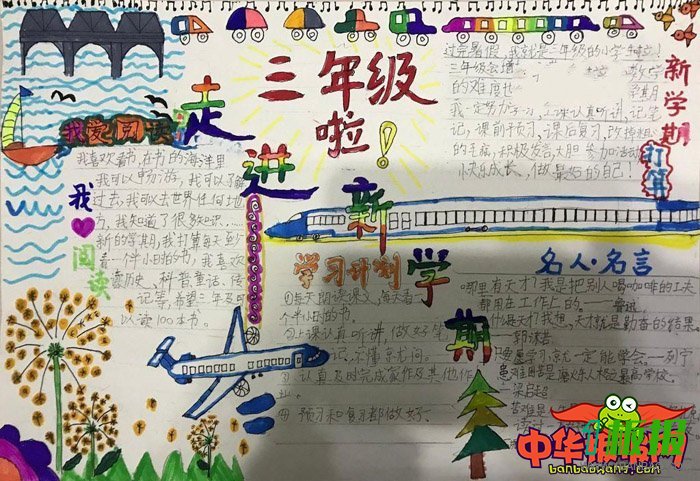 三年级
啦！
走进新学期
我爱阅读
我喜欢看书,在书的海洋里
我可以畅游,我可以了解
过去,我可以去世界任何地
方,我知道了很多知识……
新的学期,我打算每天至少
看一件小时的书,我喜欢
历史、科普、童话、传
记等,希望三年级可
以读100本书。
我
阅读
过完暑假,我就是三年级的小学
三年级会增
的难度也
记,课前预习,课后复习,改掉粗
的毛病,积极发言,大胆参加活动
快乐成长,做最好的自己!
新学期
打算
学习计划
①每天朗读课文,每天看一
个半小时的书。
②上课认真听讲,做好笔
记,不懂就问。
③认真及时完成家作及其他作
业。
④预习和复习都做好。
名人·名言
哪里有天才?我是把别人喝咖啡的工夫
都用在工作上的。——鲁迅
什么是天才!我想,天才就是勤奋的结果
郭沫若
只要愿学习,就一定能学会。—列宁
患难困苦是磨炼人格之最高学校。
梁启超
苦难是
中华板报网
banbaowang.com